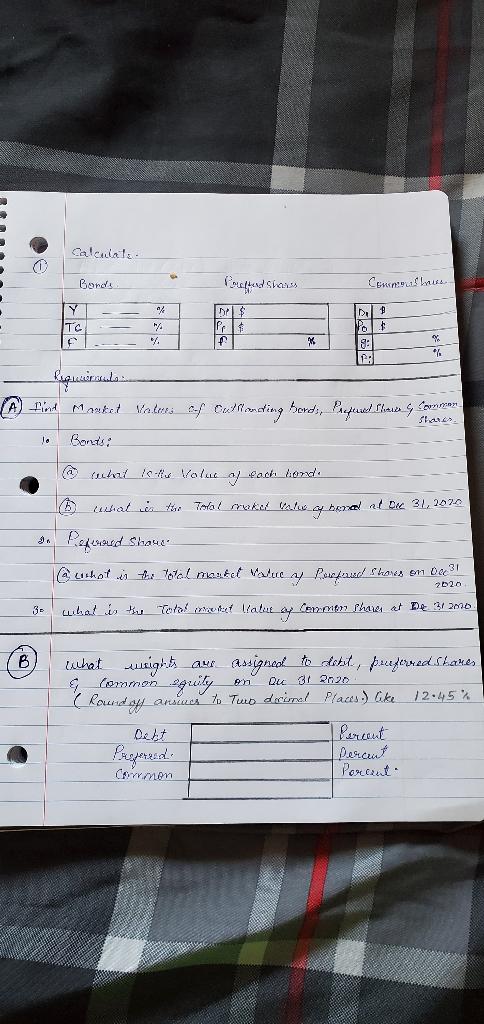 ① Calculate.
Bonds. Preffered Shares Common Shares
Y ____ % D1 $ D1 $
TC ____ % Pp $ Po $
F ____ % f % g: %
f: %
Requirements:
Ⓐ find Market Values of Outstanding bonds, Prefured Shares & Common Shares.
1. Bonds:
ⓐ what is the Value of each bond.
ⓑ what is the Total market Value of bond at Dec 31, 2020
2. Peferred Share.
ⓐ what is the Total market Value of Prefered Shares on Dec 31 2020.
3. what is the Total market Value of Common Shares at De 31 2020.
Ⓑ what weights are assigned to debt, preferred shares
& Common equity on Dec 31 2020.
(Round off answers to Two decimal Places.) like 12.45%
Debt Percent
Prefered. Percent
Common Percent.